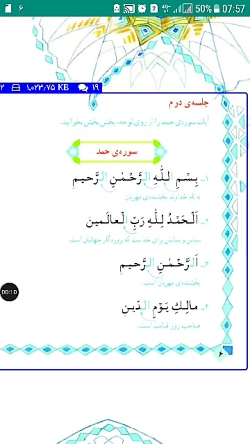 ۶ 50% 07:57
۲ ۱,۰۲۳/۷۵ KB ۱۹
جلسه‌ی دوم
آیات سوره‌ی حمد را از روی لوحه، بخش بخش بخوانید.
سوره‌ی حمد
۱ـ بِسْمِ اللّٰهِ الرَّحْمٰنِ الرَّحيمِ
به نام خداوند بخشنده‌ی مهربان
۲ـ اَلْحَمْدُ لِلّٰهِ رَبِّ الْعالَمينَ
سپاس و ستایش برای خداست که پروردگار جهانیان است
۳ـ اَلرَّحْمٰنِ الرَّحيمِ
بخشنده‌ی مهربان است
۴ـ مالِكِ يَوْمِ الدّينِ
صاحب روز قیامت است
00:10
۶